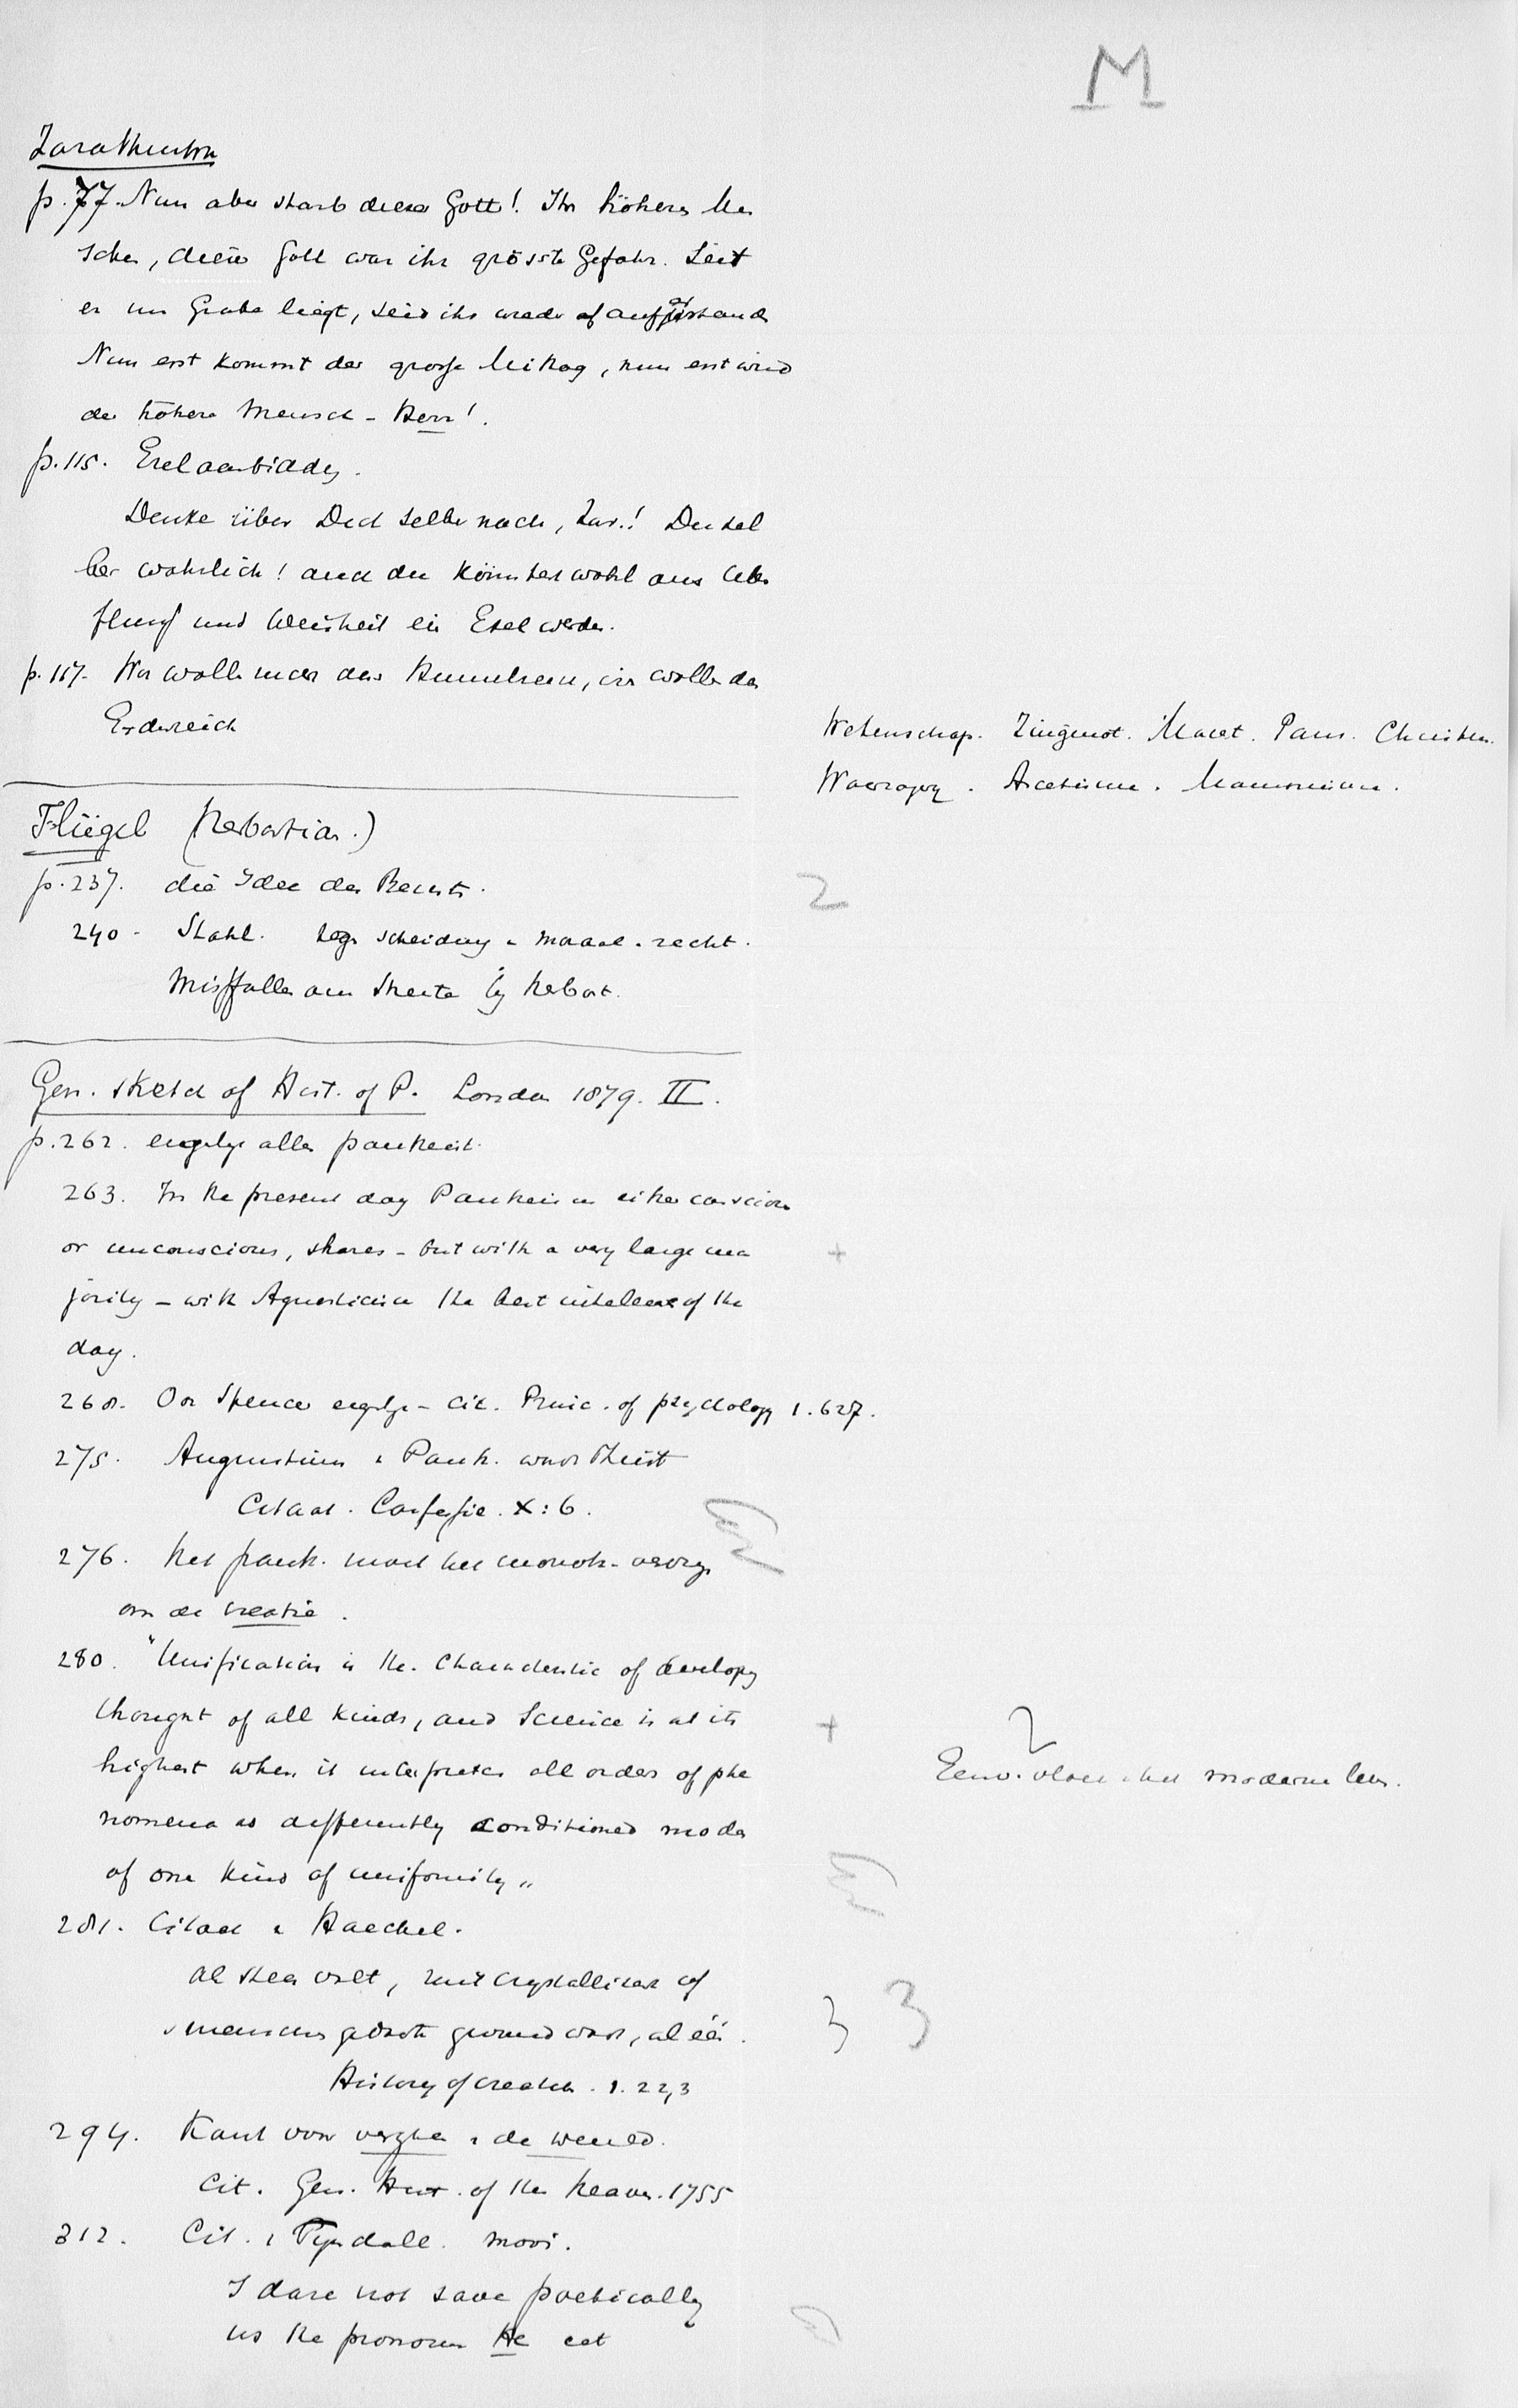 M
Zarathustra
p. 77. Nun aber starb dieser Gott! Ihr höheren Men
schen, dieser Gott war ihr grösste Gefahr. Seit
er im Grabe liegt, seid ihr wieder auferstanden
Nun erst kommt der grosse Mittag, nun erst wird
der höhere Mensch - Herr!
p. 115. Ezelaanbidding.
Denke über Dich selber nach, Zar.! Du sel
ber wahrlich! auch du könntest wohl aus Ueber
fluss und Weisheit ein Esel werden.
p. 117. Wir wollen nicht das Himmelreich, wir wollen das
Erdenreich
Wetenschap. Tingenot. Macht. Pant. Christen.
Ascetisme.
Flügel (Herbartian.)
p. 237. die Idee des Rechts.
2
240 - Stahl. scheiding v moraal. recht.
Missfallen am Streite bij Herbart.
Gen. sketch of Hist. of P. London 1879. II.
p. 262. engelsche allen pantheist.
263. In the present day Pantheism either conscious
or unconscious, shares - but with a very large ma
+
jority - with Agnosticism the best intellect of the
day.
268. Over Spencer engelsche - cit. Princ. of psychology 1. 627.
275. Augustinus v Panth. naar Theist
Citaat. Confessie. X: 6.
276. het panth. moet het monoth. 
om de creatie.
280. "Unification is the characteristic of developing
thought of all kinds, and Science is at its
+
2
highest when it interpretes all orders of phe
Eenv. modern leven.
nomena as differently conditioned modes
of one kind of uniformity"
281. Citaat v Haeckel.
als steen valt, zuur crystalliseert of
s menschen gedachte gevormd wordt, al één.
3 3
History of creation. 1. 22,3
294. Kant over v de wereld.
Cit. Gen. Hist. of the Heavens. 1755
312. Cit. v Tyndall. mooi.
I dare not save poetically
us the pronoun He cet